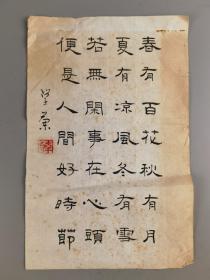 春有百花秋有月
夏有凉風冬有雪
若無閑事在心頭
便是人間好時節